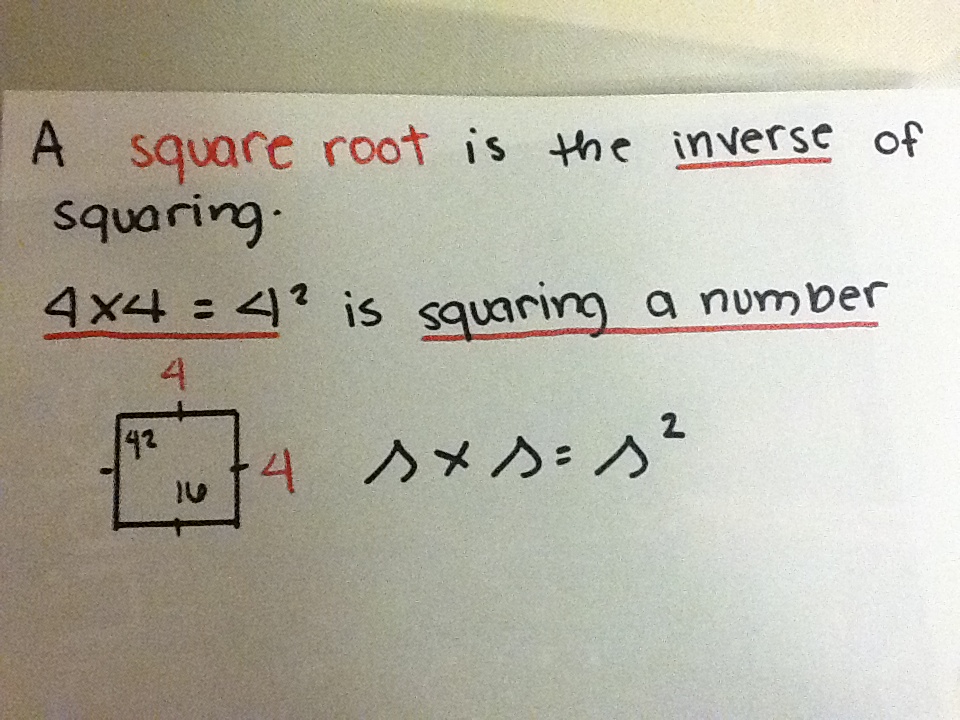 A square root is the inverse of
squaring.
4x4 = 4² is squaring a number
4
4²
16
4
s x s = s²